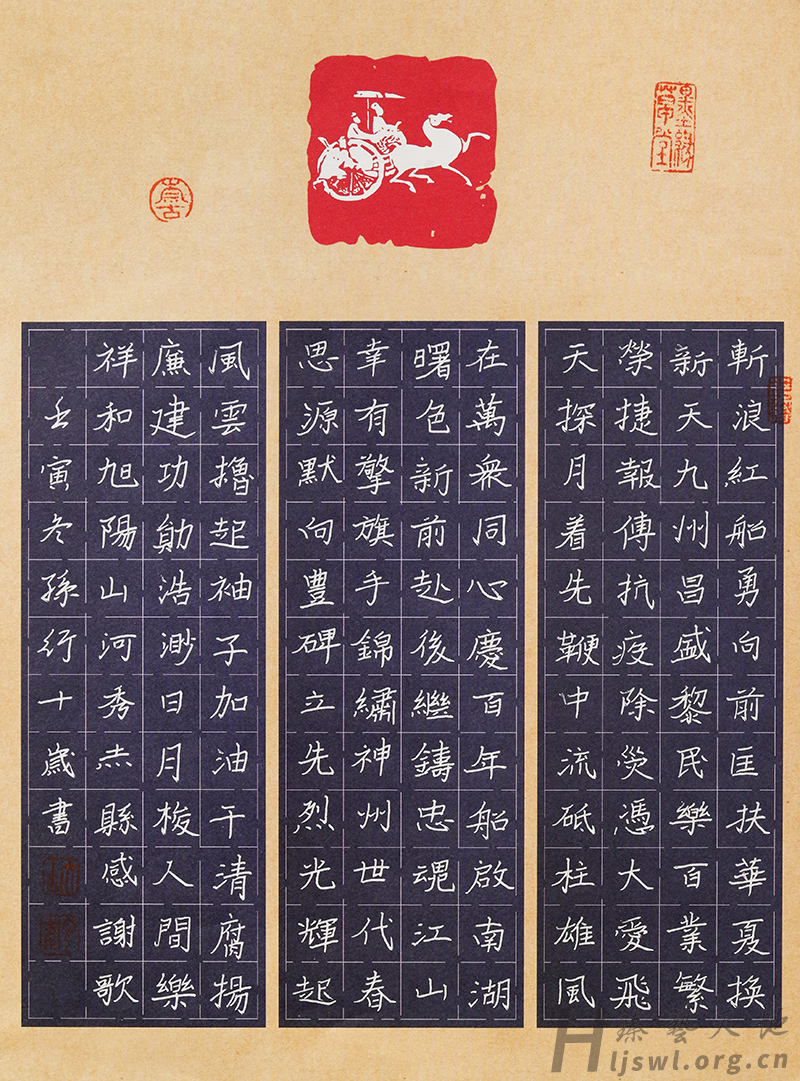 墨緣草堂
崇古
斬浪紅船勇向前匡扶華夏換
新天九州昌盛黎民樂百業繁
榮捷報傳抗疫除災憑大愛飛
天探月着先鞭中流砥柱雄風
在萬衆同心慶百年船啟南湖
曙色新前赴後繼鑄忠魂江山
幸有擎旗手錦繡神州世代春
思源默向豐碑立先烈光輝起
風雲擼起袖子加油干清腐揚
廉建功勛浩渺日月梭人間樂
祥和旭陽山河秀赤縣感謝歌
壬寅冬孫行十歲書
臻藝天地
Hljswl.org.cn